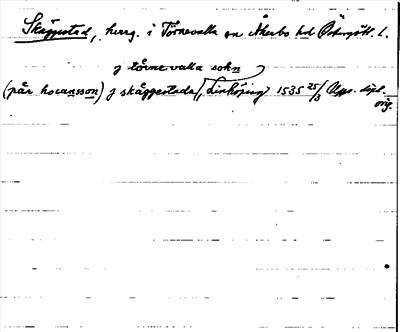 Skäggestad, herrg. i Törnevalla sn Åkerbo hd Östergötl. l.
j törne valla sokn
(pär hocansson) j skäggestada, Linköping 1535 25/3 Upps. dipl. orig.